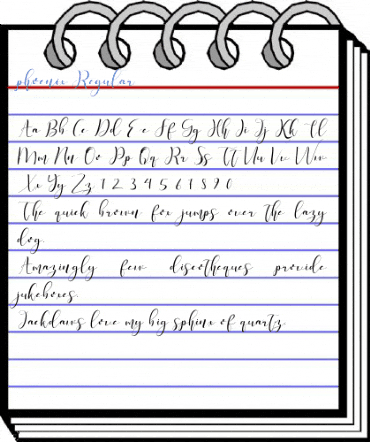 phoenix Regular
Aa Bb Cc Dd Ee Ff Gg Hh Ii Jj Kk Ll
Mm Nn Oo Pp Qq Rr Ss Tt Uu Vv Ww
Xx Yy Zz 1 2 3 4 5 6 7 8 9 0
The quick brown fox jumps over the lazy
dog.
Amazingly few discotheques provide
jukeboxes.
Jackdaws love my big sphinx of quartz.